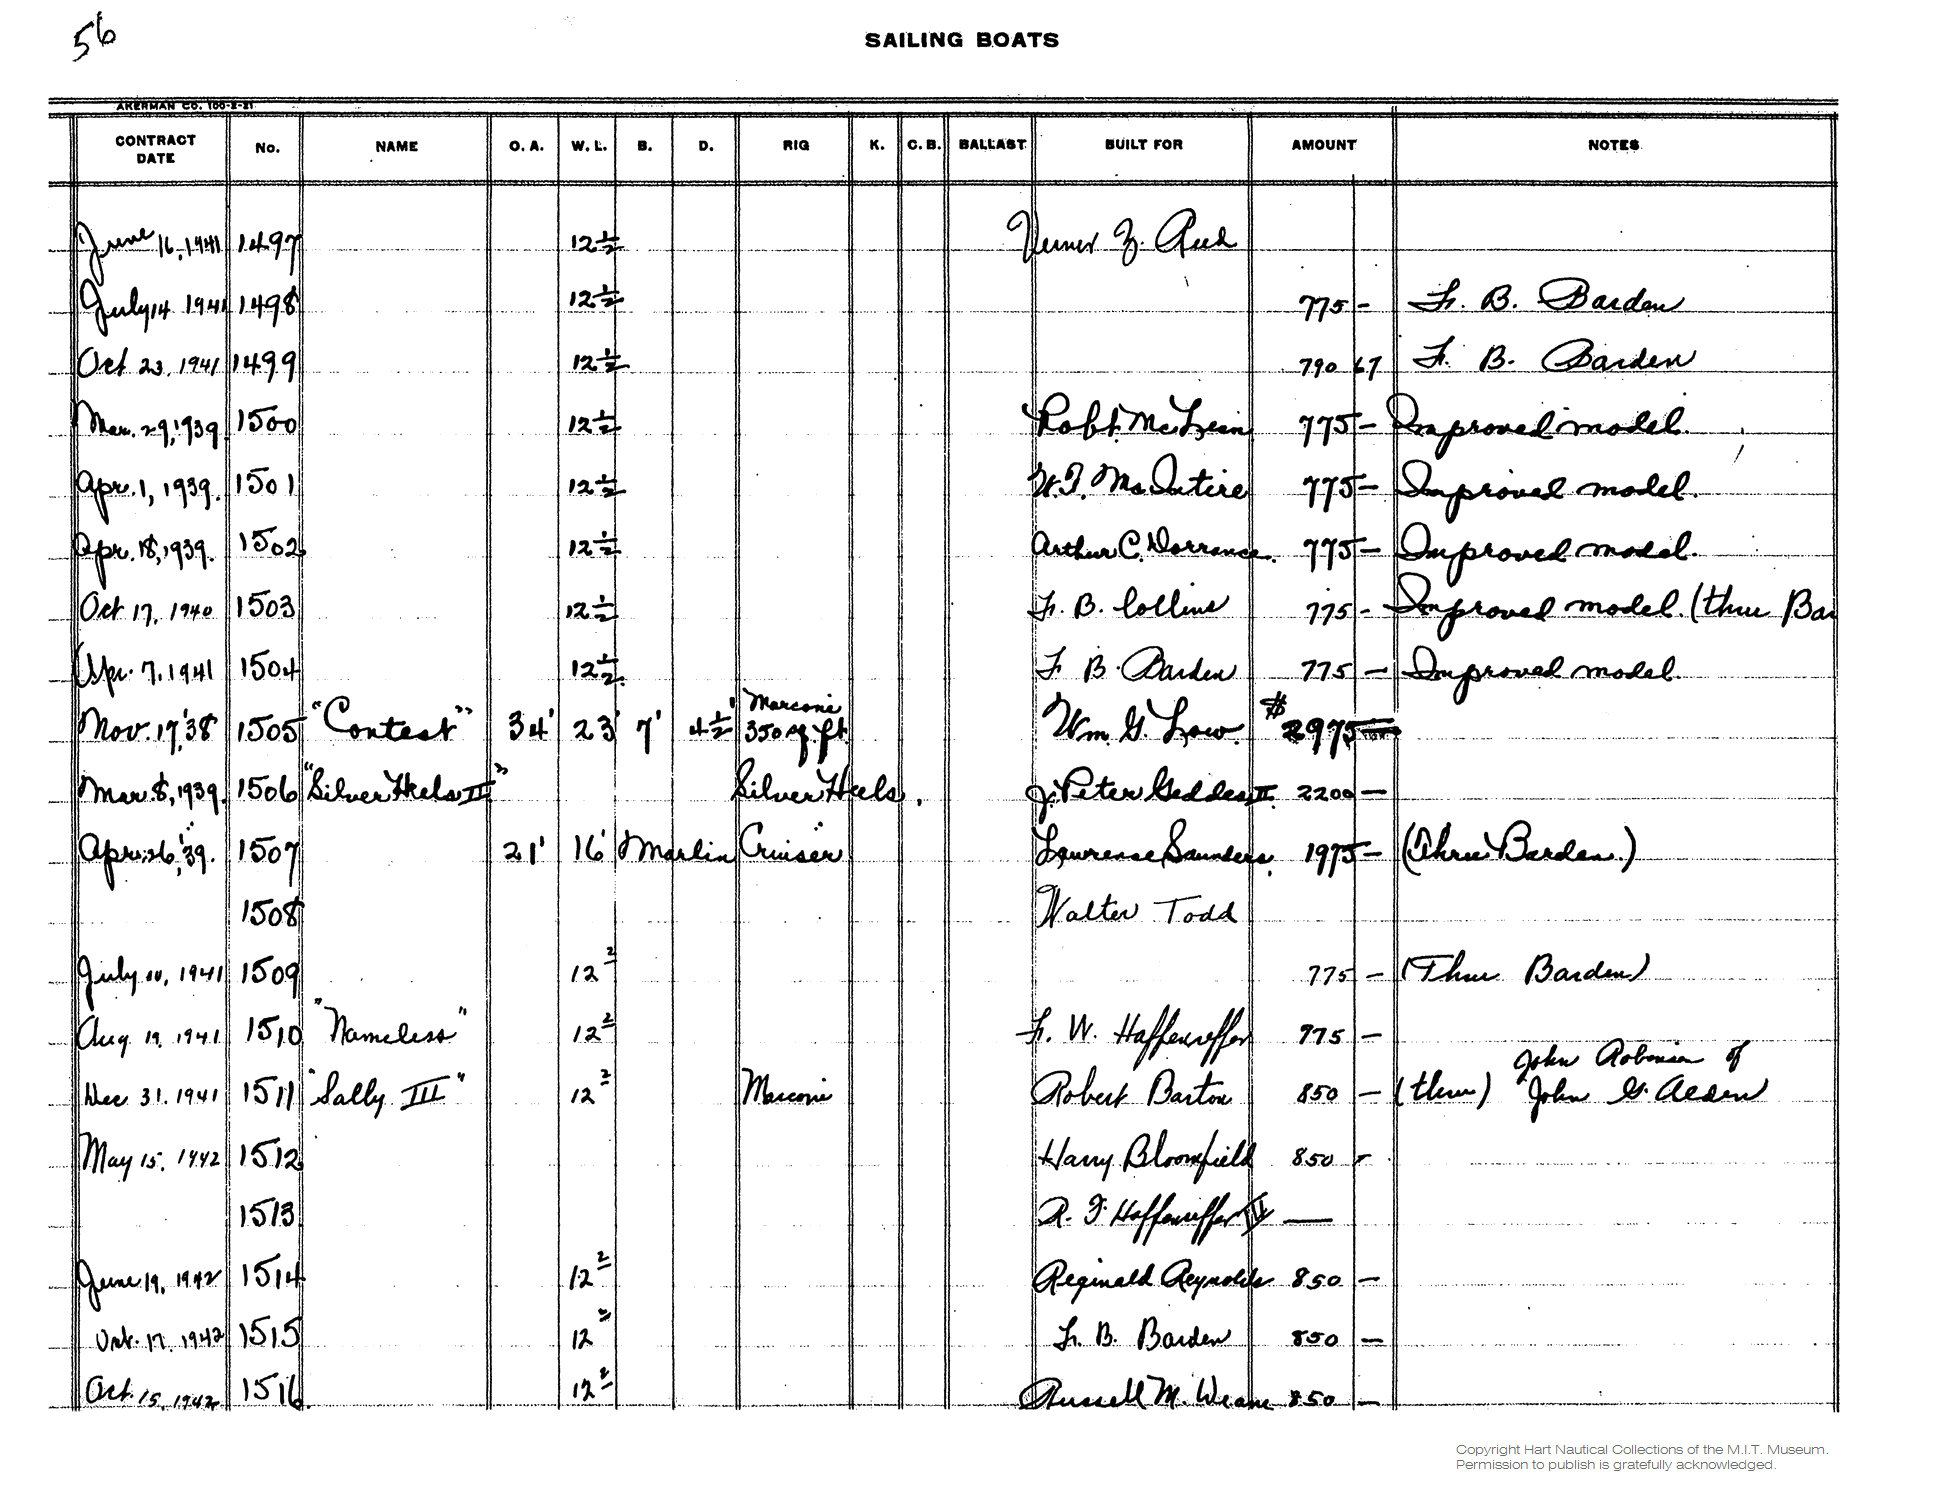 56
SAILING BOATS
AKERMAN CO. 100-2-21
CONTRACT DATE No. NAME O. A. W. L. B. D. RIG K. C. B. BALLAST BUILT FOR AMOUNT NOTES
June 16, 1941 1497 12 1/2 Verner Z. Reed
July 14 1941 1498 12 1/2 775 - Fr. B. Barden
Oct 23, 1941 1499 12 1/2 790 67 Fr. B. Barden
Mar. 29, 1939. 1500 12 1/2 Robt. McLean 775 - Improved model.
Apr. 1, 1939. 1501 12 1/2 W.F. McIntire 775 - Improved model.
Apr. 18, 1939. 1502 12 1/2 Arthur C. Dorrance. 775 - Improved model.
Oct 17, 1940 1503 12 1/2 Fr. B. Collins 775 - Improved model. (thru Bar
Apr. 7, 1941 1504 12 1/2 F B. Barden 775 - Improved model.
Nov. 17, '38 1505 "Contest" 34' 23' 7' 4 1/2' Marconi 350 sq. ft. Wm. G. Low. $2975 -
Mar. 8, 1939. 1506 "Silver Heels II" Silver Heels. J. Peter Geddes II. 2200 -
Apr. 26, '39. 1507 21' 16' Marlin Cruiser Lawrence Saunders. 1975 - (Thru Barden.)
1508 Walter Todd
July 10, 1941 1509 12 2 775 - (Thru Barden)
Aug 19, 1941 1510 "Nameless" 12 2 Fr. W. Haffenreffer 775 -
Dec 31, 1941 1511 "Sally III" 12 2 Marconi Robert Barton 850 - (thru) John Robinson of John G. Alden
May 15, 1942 1512 Harry Bloomfield 850 -
1513 R. F. Haffenreffer IV —
June 19, 1942 1514 12 2 Reginald Reynolds 850 -
Oct. 17, 1942 1515 12 2 Fr. B. Barden 850 -
Oct. 15, 1942 1516 12 2 Russell M. 850 -
Copyright Hart Nautical Collections of the M.I.T. Museum.
Permission to publish is gratefully acknowledged.